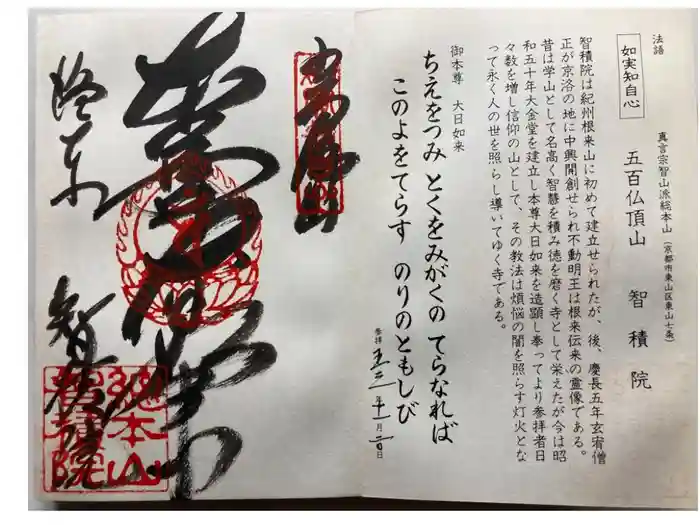 真言宗智山派総本山（京都市東山区東山七条）
五百仏頂山　智積院
法語
如実知自心
智積院は紀州根来山に初めて建立せられたが、後、慶長五年玄宥僧
正が京洛の地に中興開創せられ不動明王は根来伝来の霊像である。
昔は学山として名高く智慧を積み徳を磨く寺として栄えたが今は昭
和五十年大金堂を建立し本尊大日如来を造顕し奉ってより参拝者日
々数を増し信仰の山として、その教法は煩悩の闇を照らす灯火とな
って永く人の世を照らし導いてゆく寺である。
御本尊　大日如来
ちえをつみ　とくをみがくの　てらなれば
このよをてらす　のりのともしび
参拝
年十一月
日
洛東
智積院
総本山
智積院